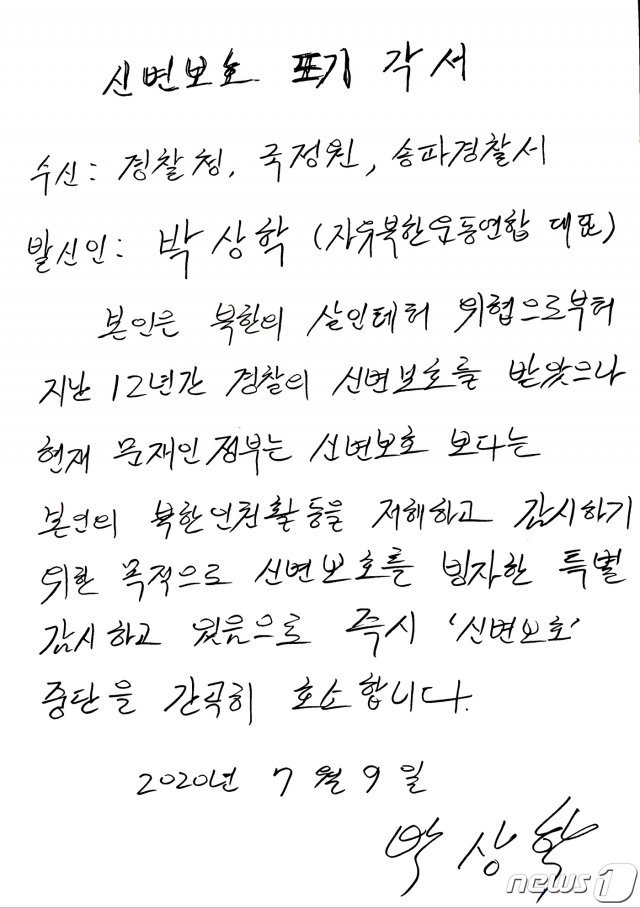 신변보호 포기 각서
수신: 경찰청, 국정원, 송파경찰서
발신인: 박상학 (자유북한운동연합 대표)
본인은 북한의 살인테러 위협으로부터
지난 12년간 경찰의 신변보호를 받았으나
현재 문재인정부는 신변보호 보다는
본연의 북한인권활동을 저해하고 감시하기
위한 목적으로 신변보호를 빙자한 특별
감시하고 있음으로 즉시 '신변보호'
중단을 간곡히 호소합니다.
2020년 7월 9일
박상학
news1